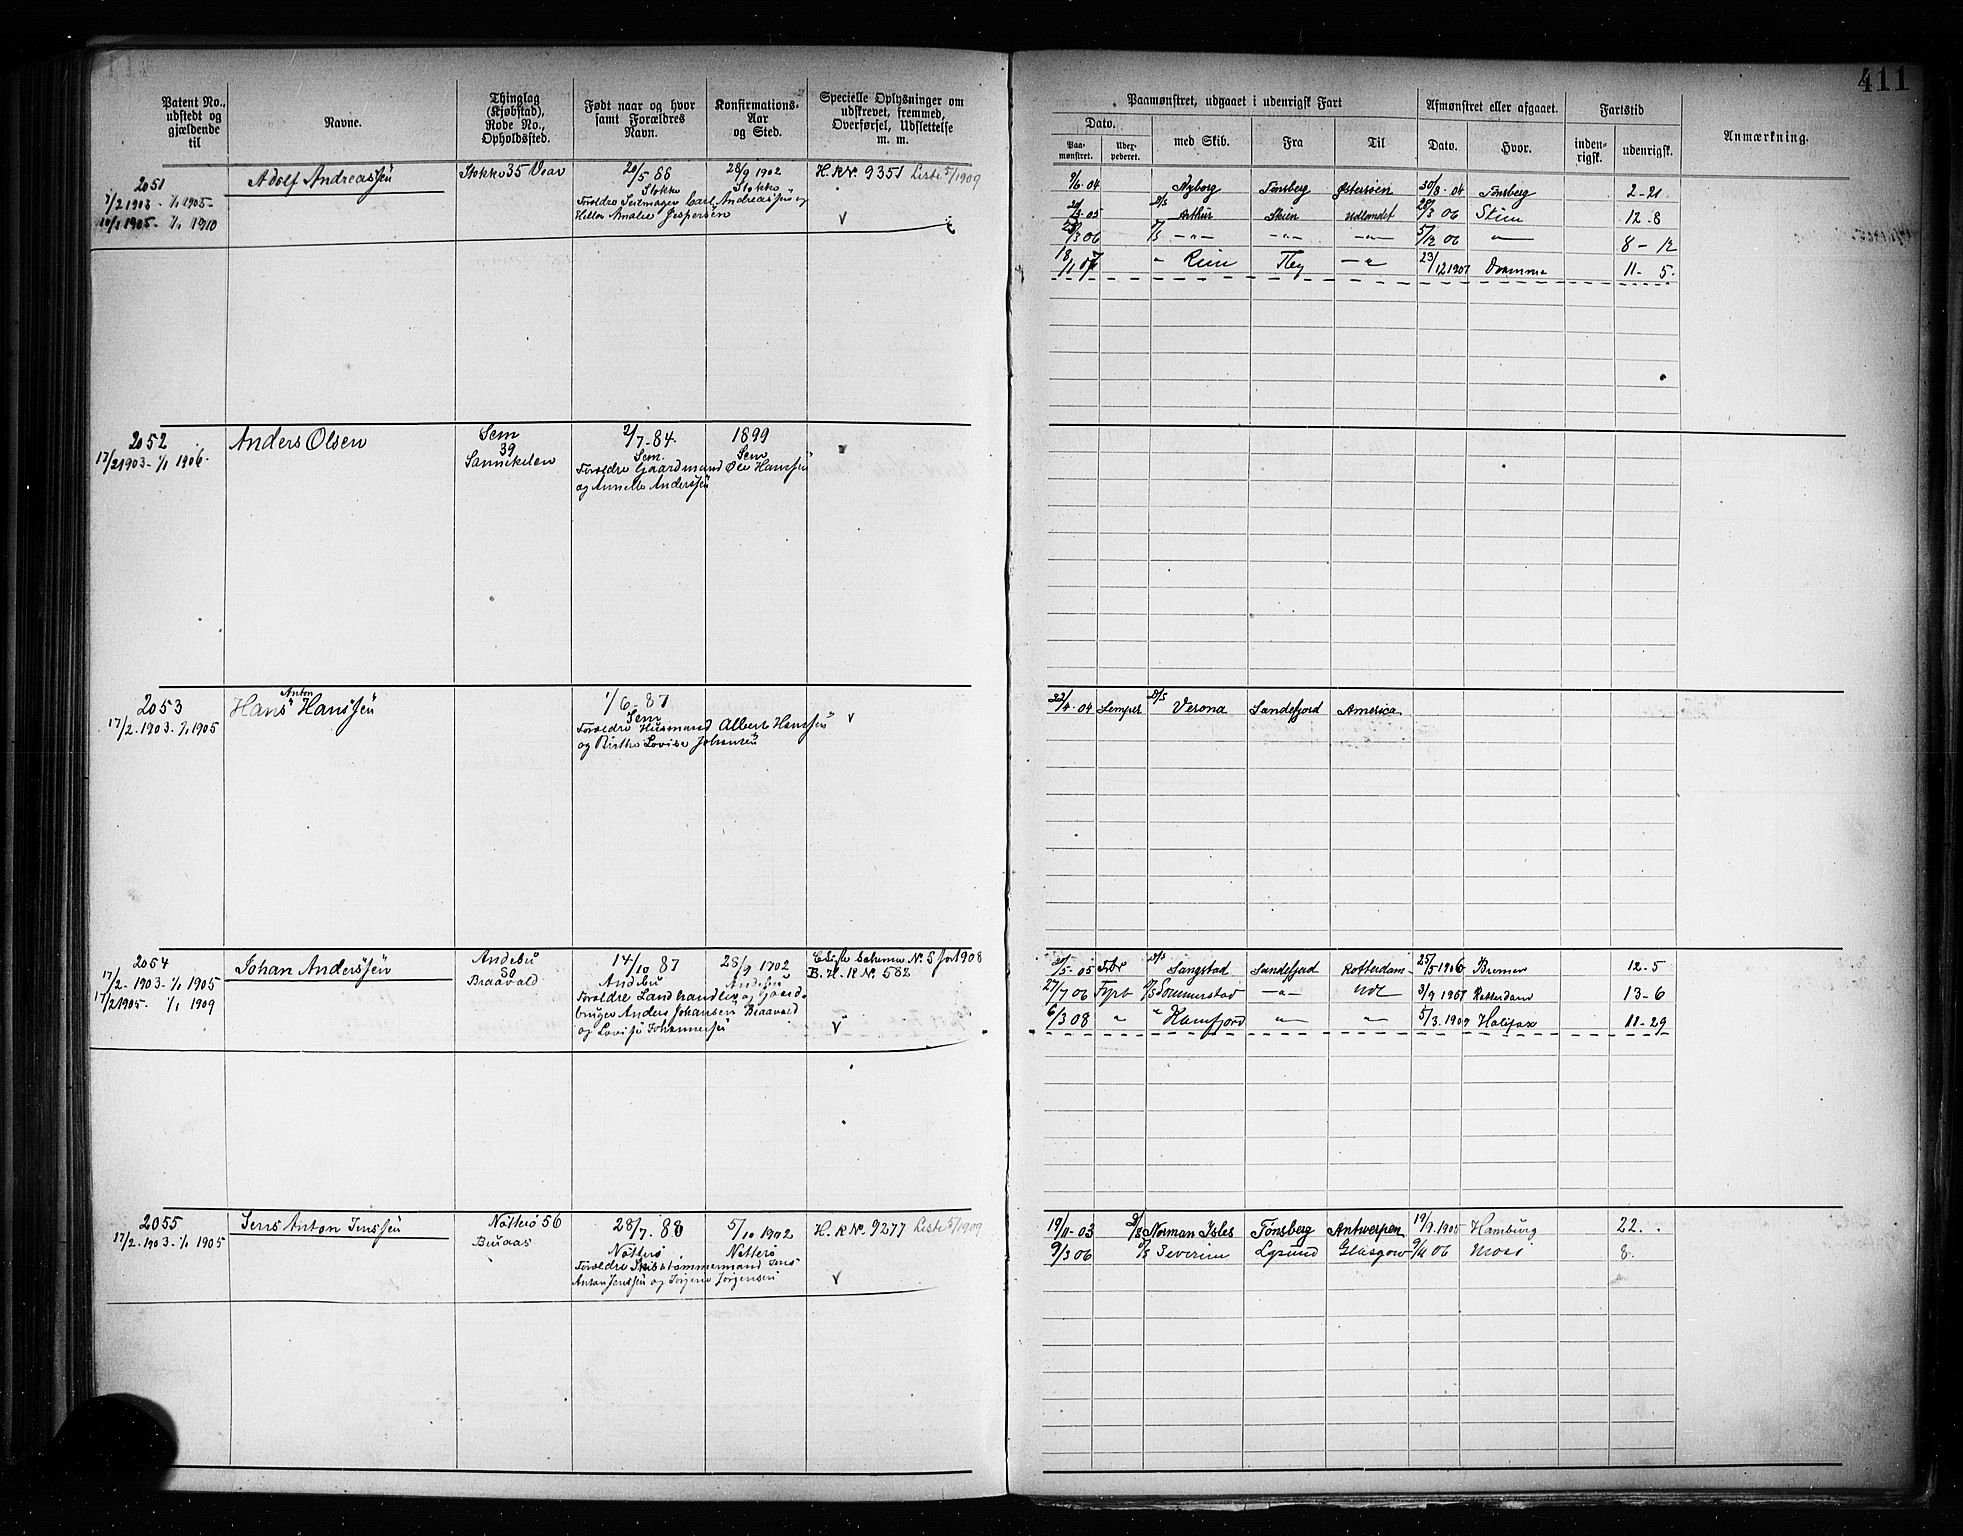 411
Patent No., udstedt og gjældende til
Navne.
Thinglag (Kjøbstad), Rode No., Opholdssted.
Født naar og hvor samt Forældres Navn.
Konfirmations-Aar og Sted.
Specielle Oplysninger om udskrevet, fremmed, Overførsel, Udslettelse m. m.
Paamønstret, udgaaet i udenrigsk Fart
Afmønstret eller afgaaet.
Fartstid
Anmærkning.
Dato.
Paa-mønstret.
Udex-pederet.
med Skib.
Fra
Til
Dato.
Hvor.
inden-rigsk.
udenrigsk.
2051 Adolf Andreassen Stokke 35 Vear 20/5 86 28/9 1902 H.R.Nr. 9351 Liste 5/1909
Stokke Stokke
1/1 1905
Forældre Seilmager Carl Andreassen og
1905 1/1 1910 Helle Amalie Jespersen V
9/6-04 Nyborg Tønsberg Østersøen 30/8-04 Tønsberg 2-21
D/S Arthur Skien Udlandet 06 Skien 12-8
23/3 06 D/S -"- -"- -"- 5/12 06 " 8-12
18/1 07 " Rein -"- 23/12 1907 11-5
2052 Anders Olsen Sem 2/7-84 1899
17/2 1903-1/1 1906 39 Sem. Sem
Sannekilen Forældre Gaardmand Ole Hanssen
og Annette Anderssen
2053 Hans Anton Hanssen 1/6-87
17/2-1903-1/1 1905 Sem
Forældre Husmand Albert Hanssen V
og Birthe Lovise Johansen
22/4-04 Semper D/S Verona Sandefjord America
2054 Johan Anderssen Andebu 14/10 87 28/9 1902 Schema N. 5 for 1908
17/2-1903-1/1 1905 50 Andebu Andebu B.H.R N. 582
Braavald
Forældre Landhandler og Gaard-
17/2 1905- 1/1 1909 bruger Anders Johansen Braavald
og Lovise Johannesen V
5-05 D/S Sangstad Sandefjord Rotterdam 25/5 1906 Bremen 12-5
27/7 06 D/S Sommerstad -"- Udl 3/9 1907 Rotterdam 13-6
6/3 08 " " Kamfjord " " 5/3 1909 Halifax 11-29
2055 Jens Anton Jenssen Nøtterø 56 28/7-88 5/10 1902 H.R.Nr. 9277 Liste 5/1909
17/2-1903-1/1 1905 Buaas Nøtterø Nøtterø
Forældre Skibstømmermand Jens
Anton Jenssen og Jørgine Jørgensen V
19/11-03 D/S Norman Isles Tønsberg Antwerpen 19/9 1905 Hamburg 22.
9/3 06 D/S Severin Lysund Glasgow 9/11 06 Moss 8.